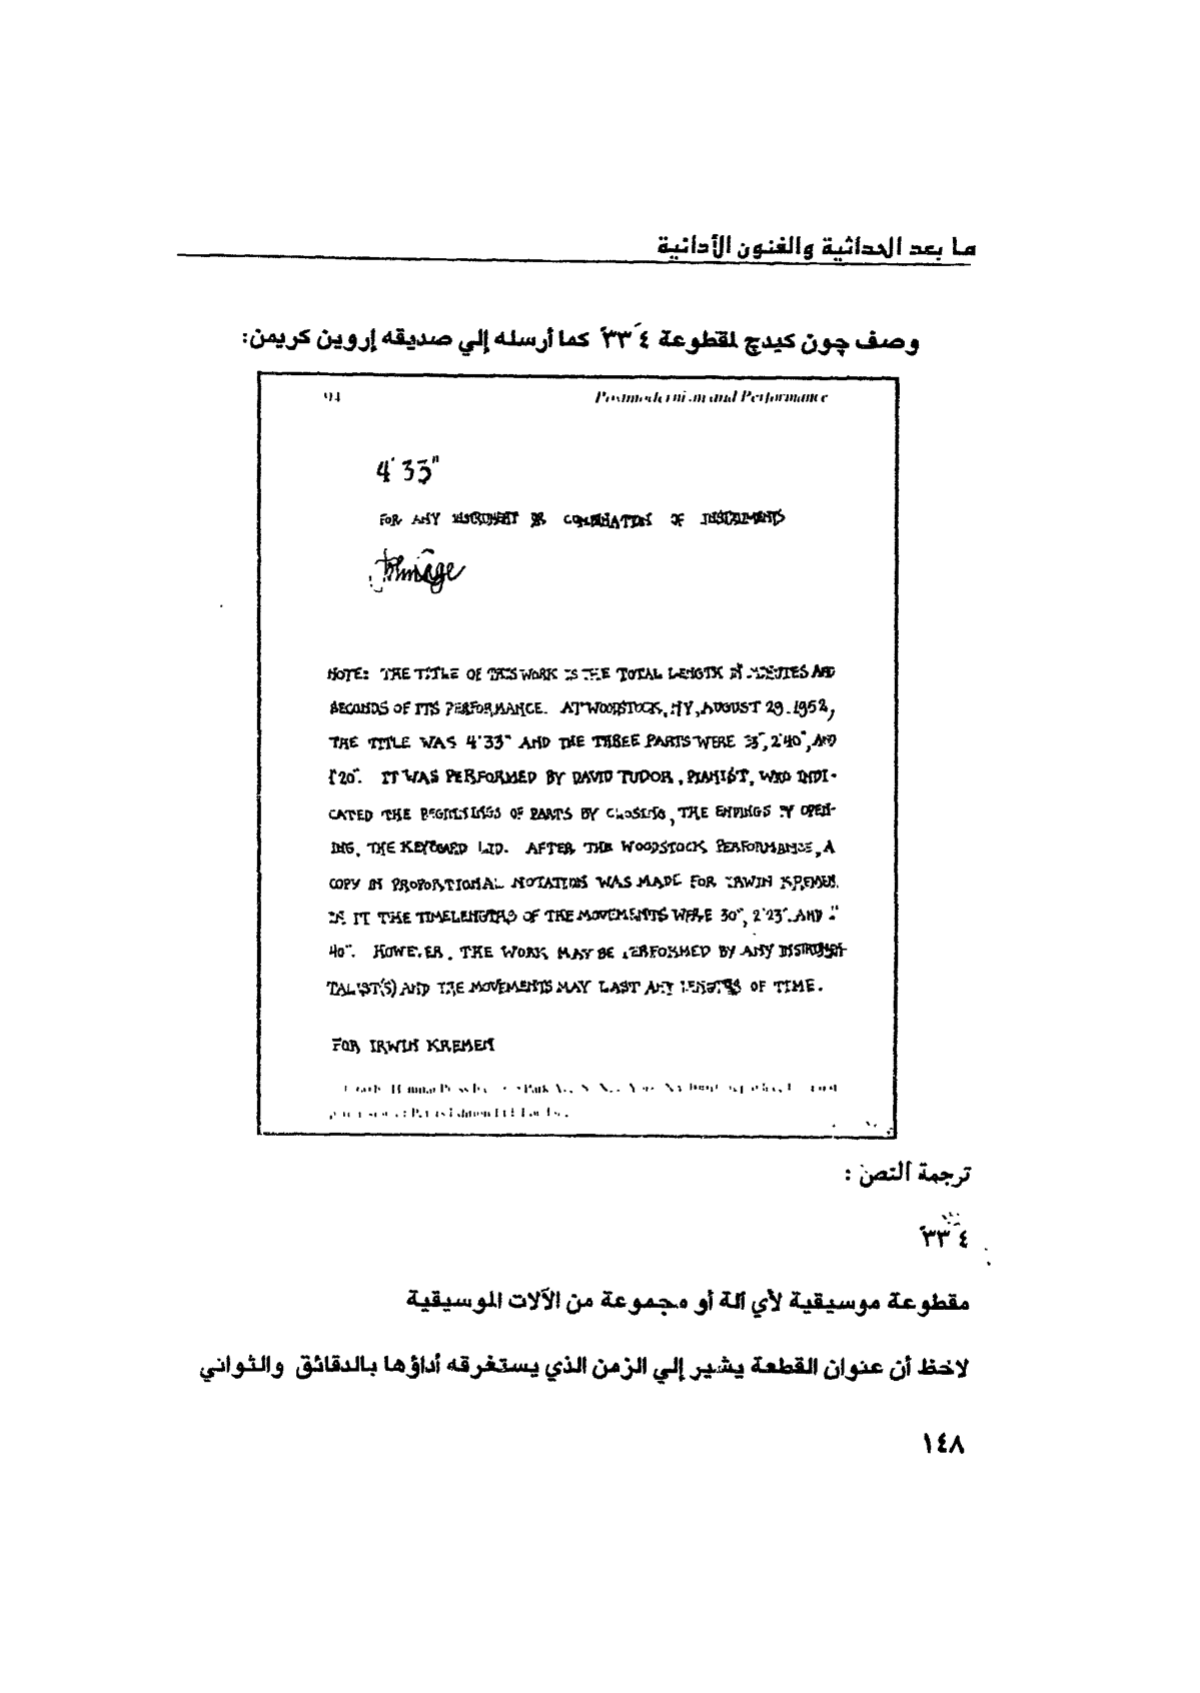 ما بعد الحداثية والفنون الأدائية
وصف چون كيدچ لمقطوعة ٤َ ٣٣ً كما أرسله إلي صديقه إروين كريمن:
94 Postmodernism and Performance
4'33"
FOR ANY INSTRUMENT OR COMBINATION OF INSTRUMENTS
John Cage
NOTE: THE TITLE OF THIS WORK IS THE TOTAL LENGTH IN MINUTES AND
SECONDS OF ITS PERFORMANCE. AT WOODSTOCK, NY, AUGUST 29, 1952,
THE TITLE WAS 4'33" AND THE THREE PARTS WERE 33", 2'40", AND
1'20". IT WAS PERFORMED BY DAVID TUDOR, PIANIST, WHO INDI-
CATED THE BEGINNINGS OF PARTS BY CLOSING, THE ENDINGS BY OPEN-
ING, THE KEYBOARD LID. AFTER THE WOODSTOCK PERFORMANCE, A
COPY IN PROPORTIONAL NOTATION WAS MADE FOR IRWIN KREMEN.
IN IT THE TIMELENGTHS OF THE MOVEMENTS WERE 30", 2'23", AND
40". HOWEVER, THE WORK MAY BE PERFORMED BY ANY INSTRUMEN-
TALIST(S) AND THE MOVEMENTS MAY LAST ANY LENGTHS OF TIME.
FOR IRWIN KREMEN
ترجمة النص :
٤َ ٣٣ً
مقطوعة موسيقية لأي آلة أو مجموعة من الآلات الموسيقية
لاحظ أن عنوان القطعة يشير إلي الزمن الذي يستغرقه أداؤها بالدقائق والثواني
١٤٨